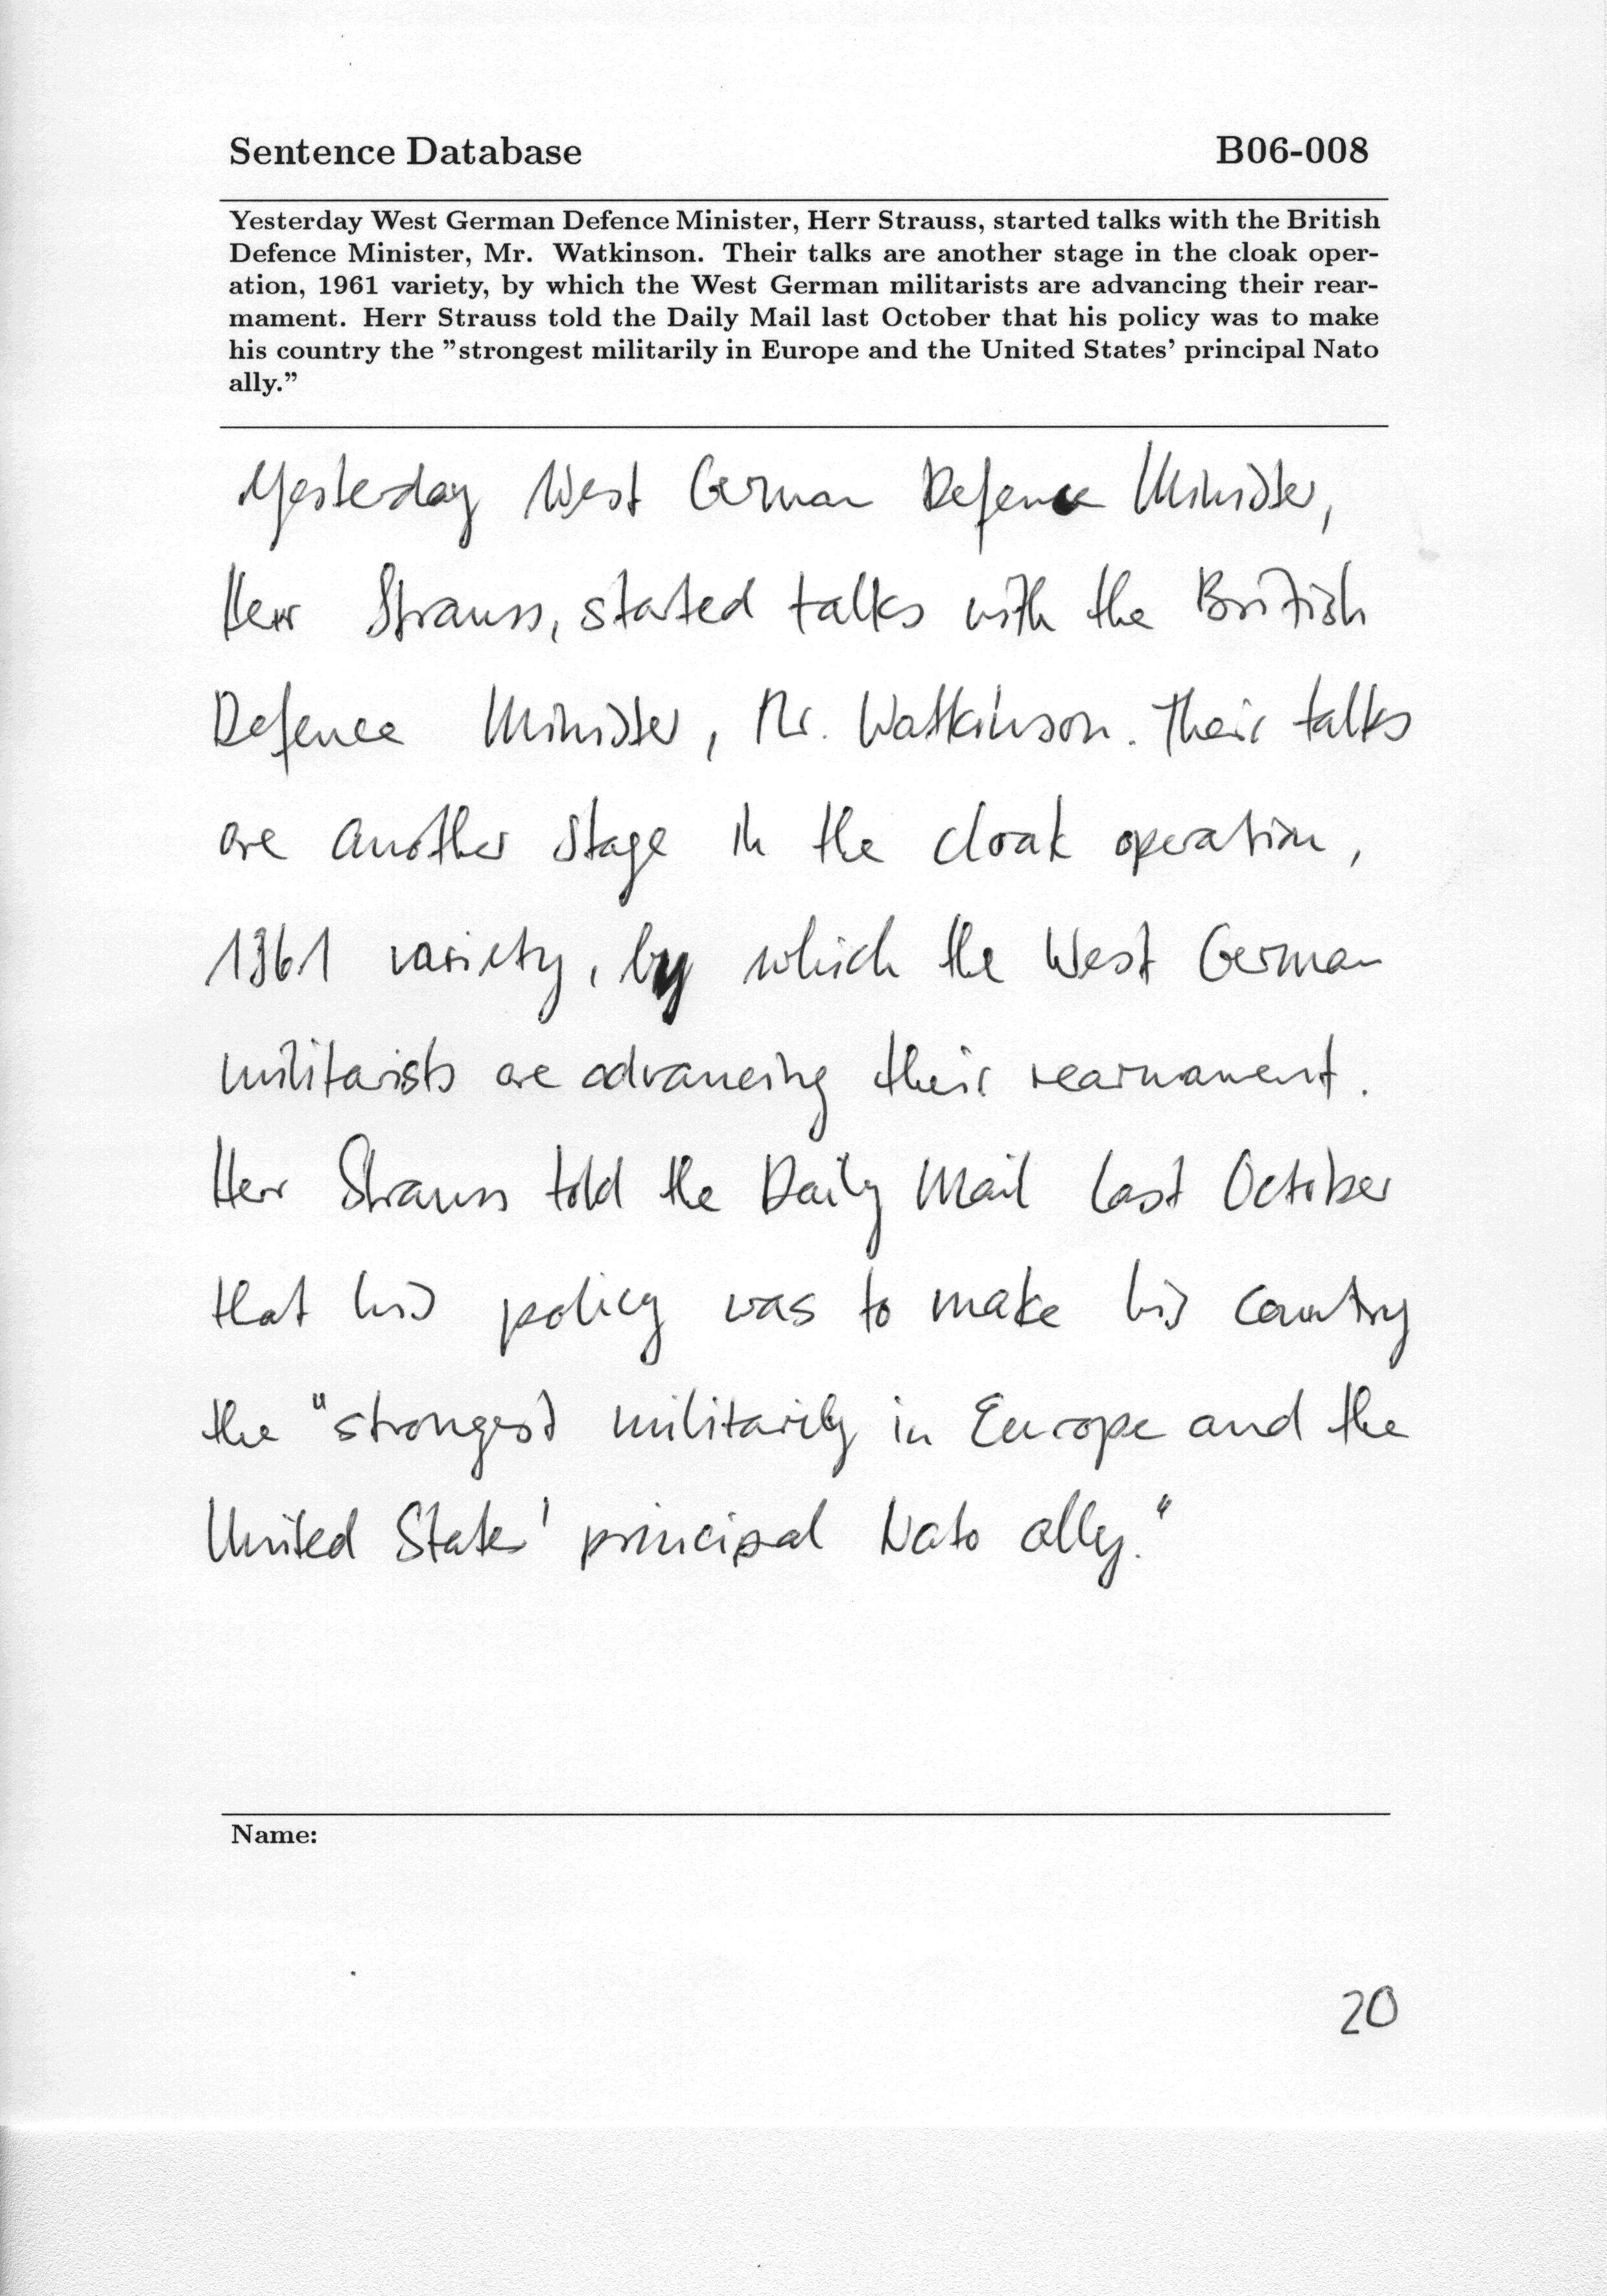 Sentence Database B06-008
Yesterday West German Defence Minister, Herr Strauss, started talks with the British
Defence Minister, Mr. Watkinson. Their talks are another stage in the cloak oper-
ation, 1961 variety, by which the West German militarists are advancing their rear-
mament. Herr Strauss told the Daily Mail last October that his policy was to make
his country the ”strongest militarily in Europe and the United States’ principal Nato
ally.”
Yesterday West German Defence Minister,
Herr Strauss, started talks with the British
Defence Minister, Mr. Watkinson. Their talks
are another stage in the cloak operation,
1961 variety, by which the West German
militarists are advancing their rearmament.
Herr Strauss told the Daily Mail last October
that his policy was to make his country
the "strongest militarily in Europe and the
United States' principal Nato ally."
Name:
20